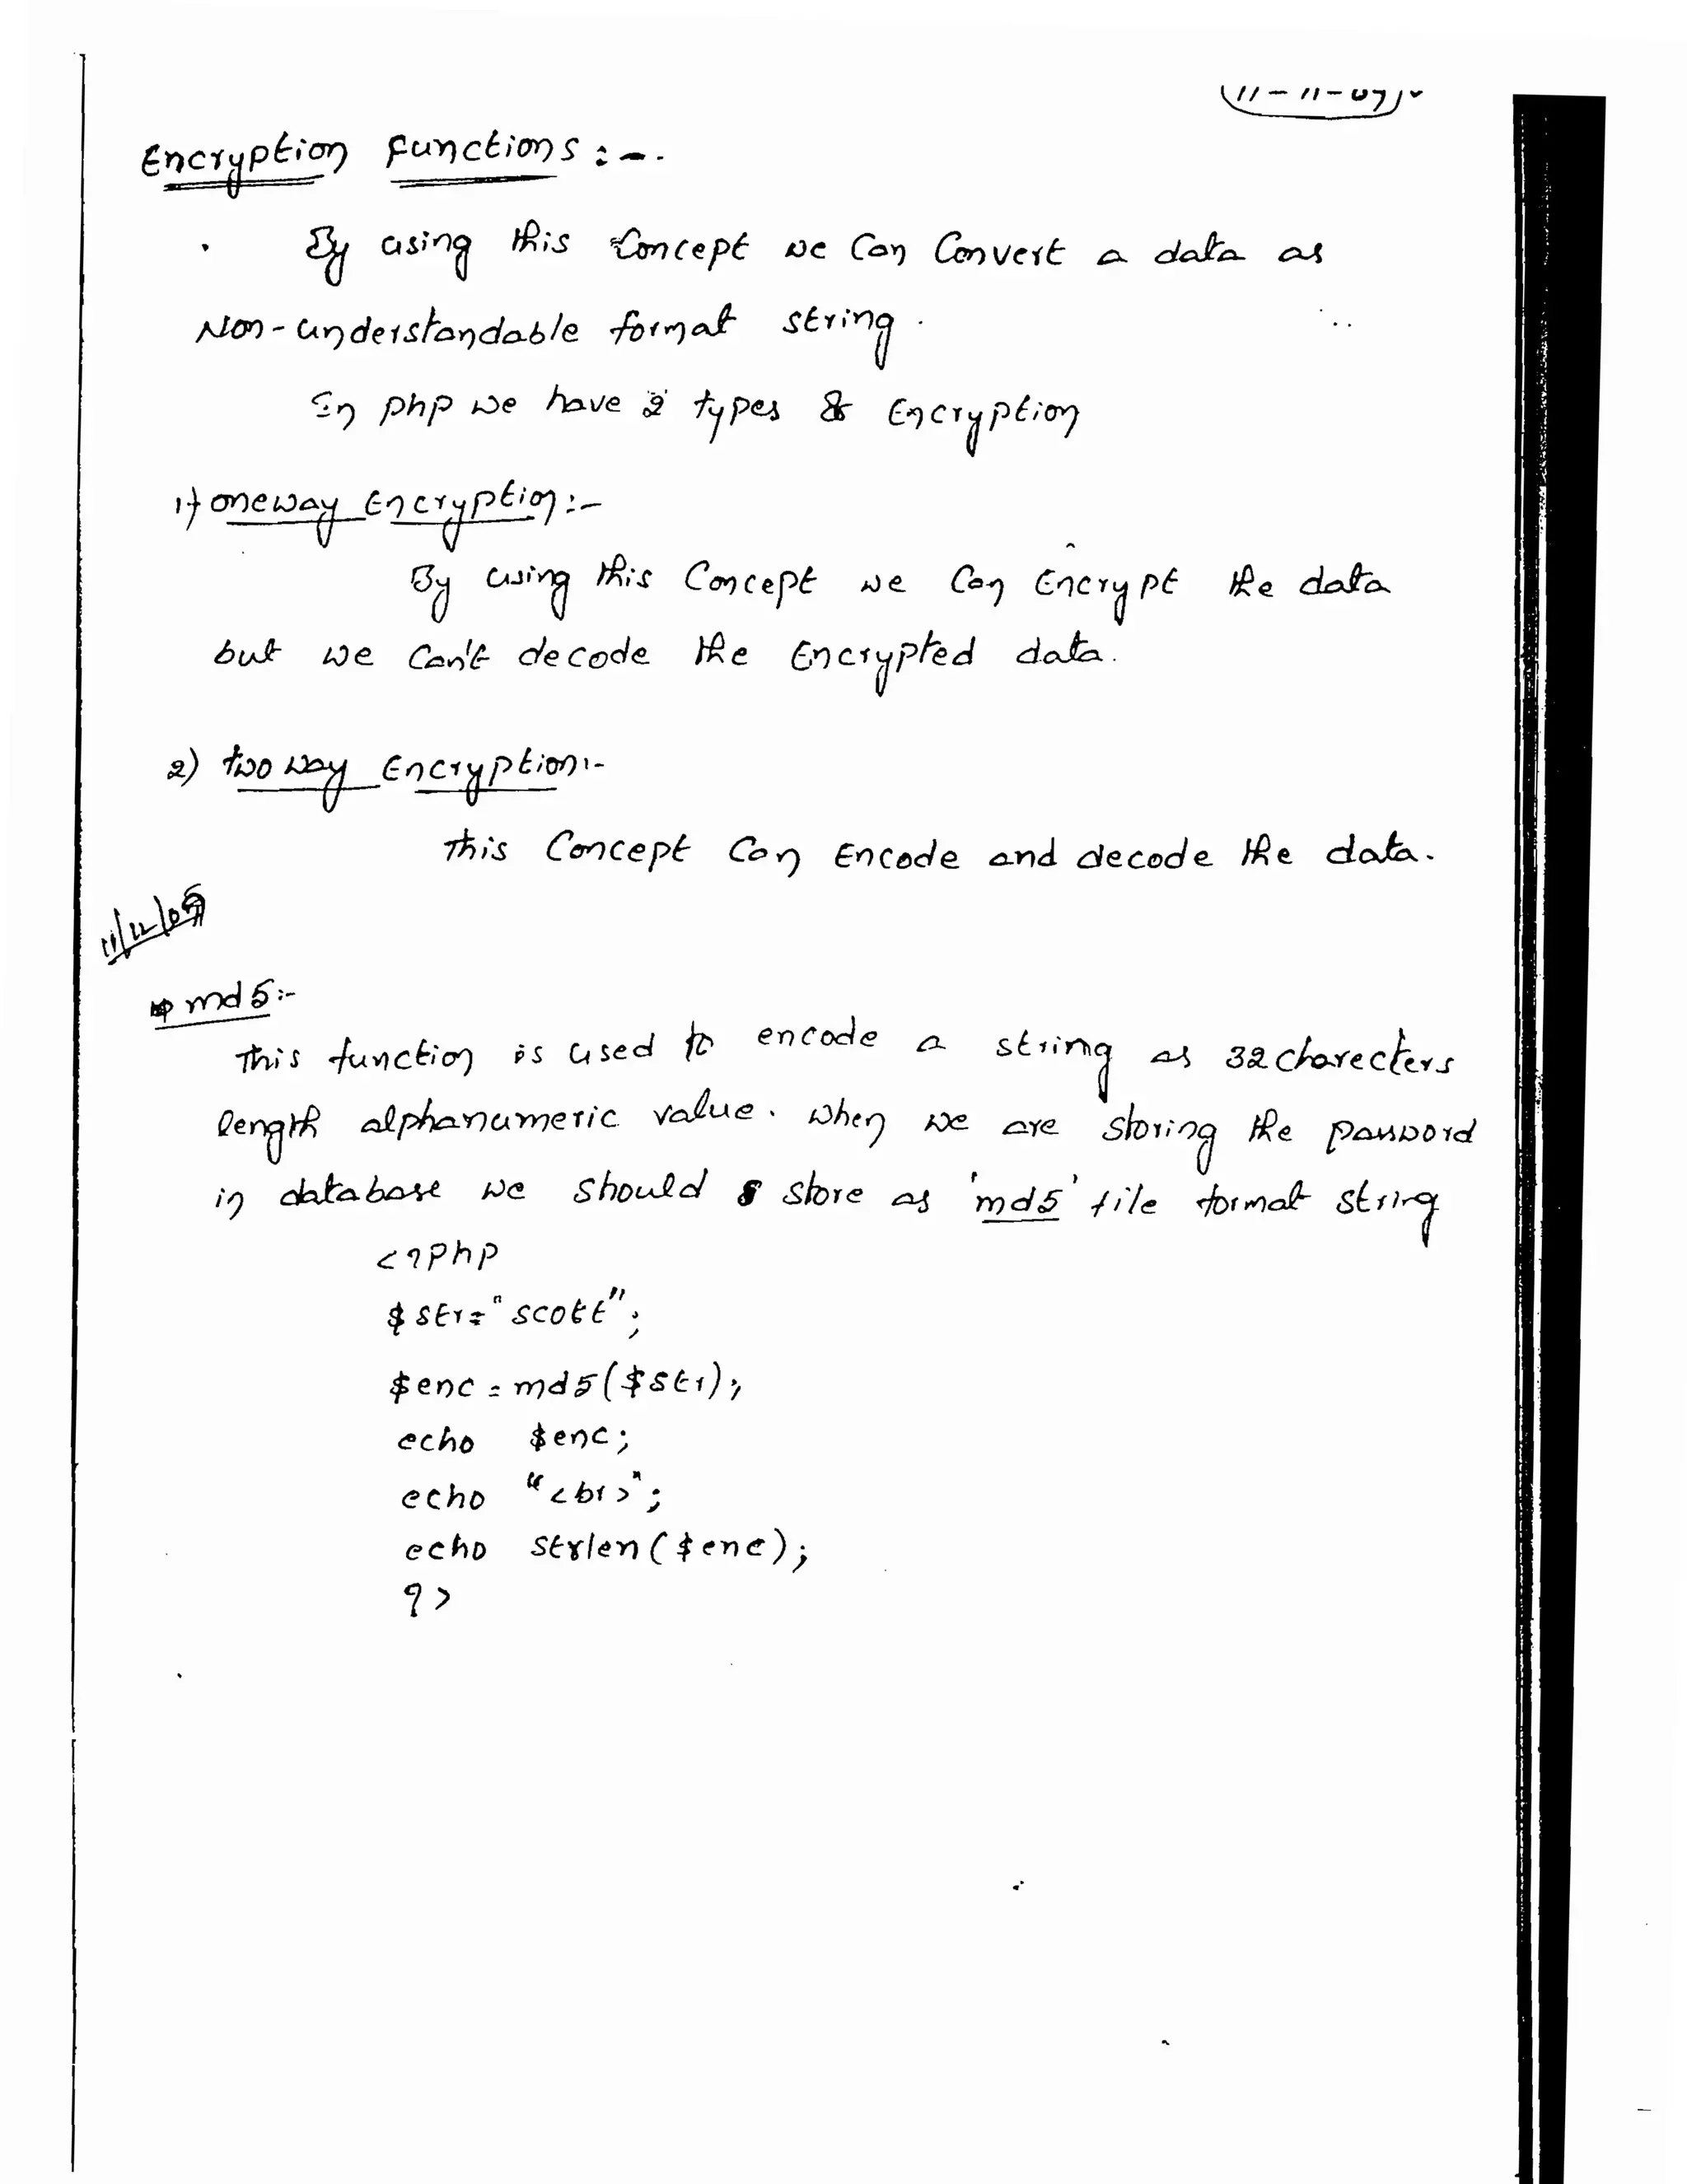 11-11-07
Encryption Functions :-.
By using this Concept we Can Convert a data as
Non-understandable format string.
In php we have 2 types & Encryption
1) oneway Encryption :-
By using this Concept we Can Encrypt the data
but we Can't decode the Encrypted data.
2) two way Encryption :-
This Concept Can Encode and decode the data.
11/12/09
md5 :-
This function is used to encode a string as 32 charecters
length alphanumeric value. when we are storing the password
in database we should store as 'md5' file format string
<?php
$str="scott";
$enc = md5($str);
echo $enc;
echo "<br>";
echo strlen($enc);
?>